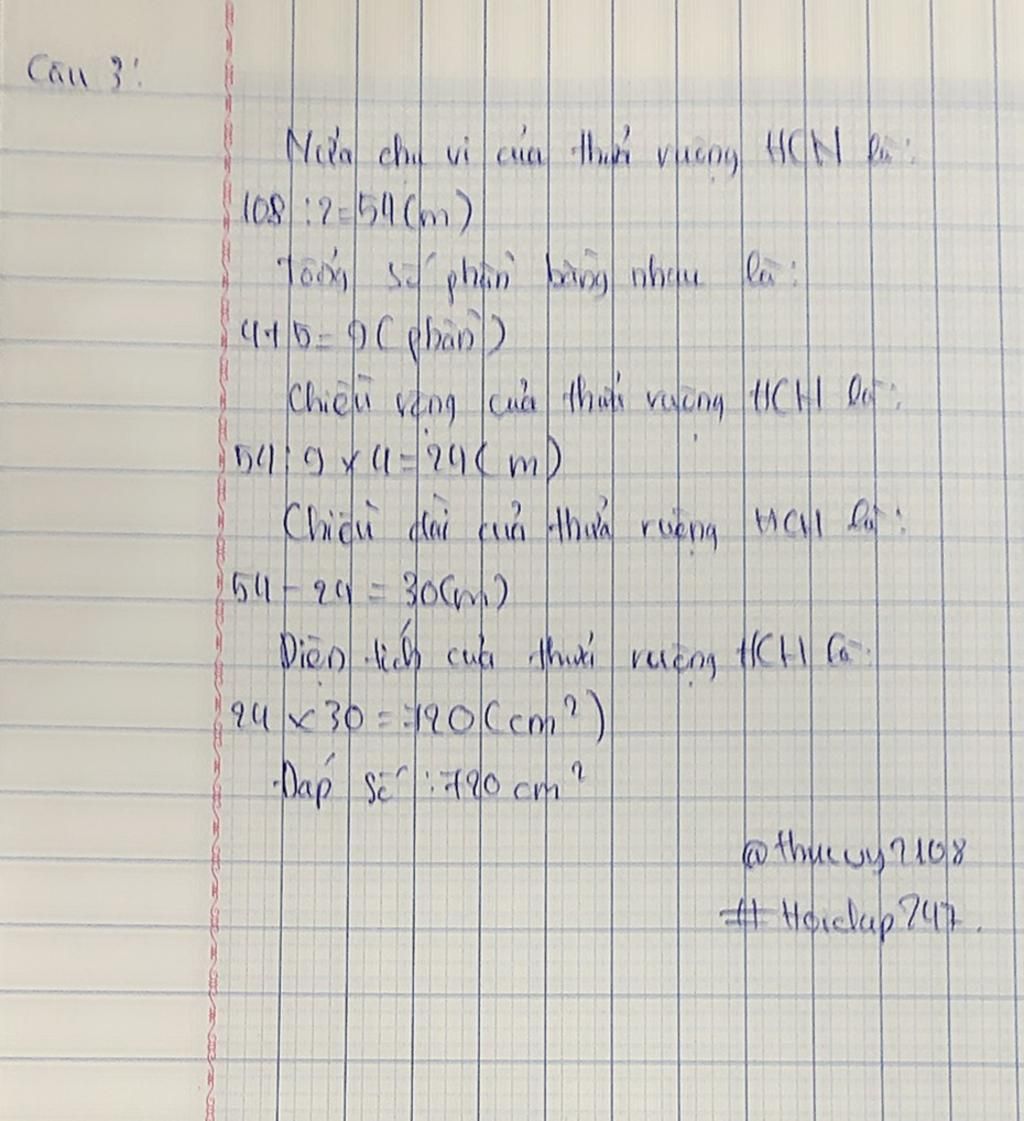 Câu 3:
Nửa chu vi của thửa ruộng HCN là:
108 : 2 = 54 (m)
Tổng số phần bằng nhau là:
4 + 5 = 9 (phần)
Chiều rộng của thửa ruộng HCN là:
54 : 9 x 4 = 24 (m)
Chiều dài của thửa ruộng HCN là:
54 - 24 = 30 (m)
Diện tích của thửa ruộng HCN là:
24 x 30 = 720 (cm²)
Đáp số : 720 cm²
@thucvy2108
#Hoidap247.